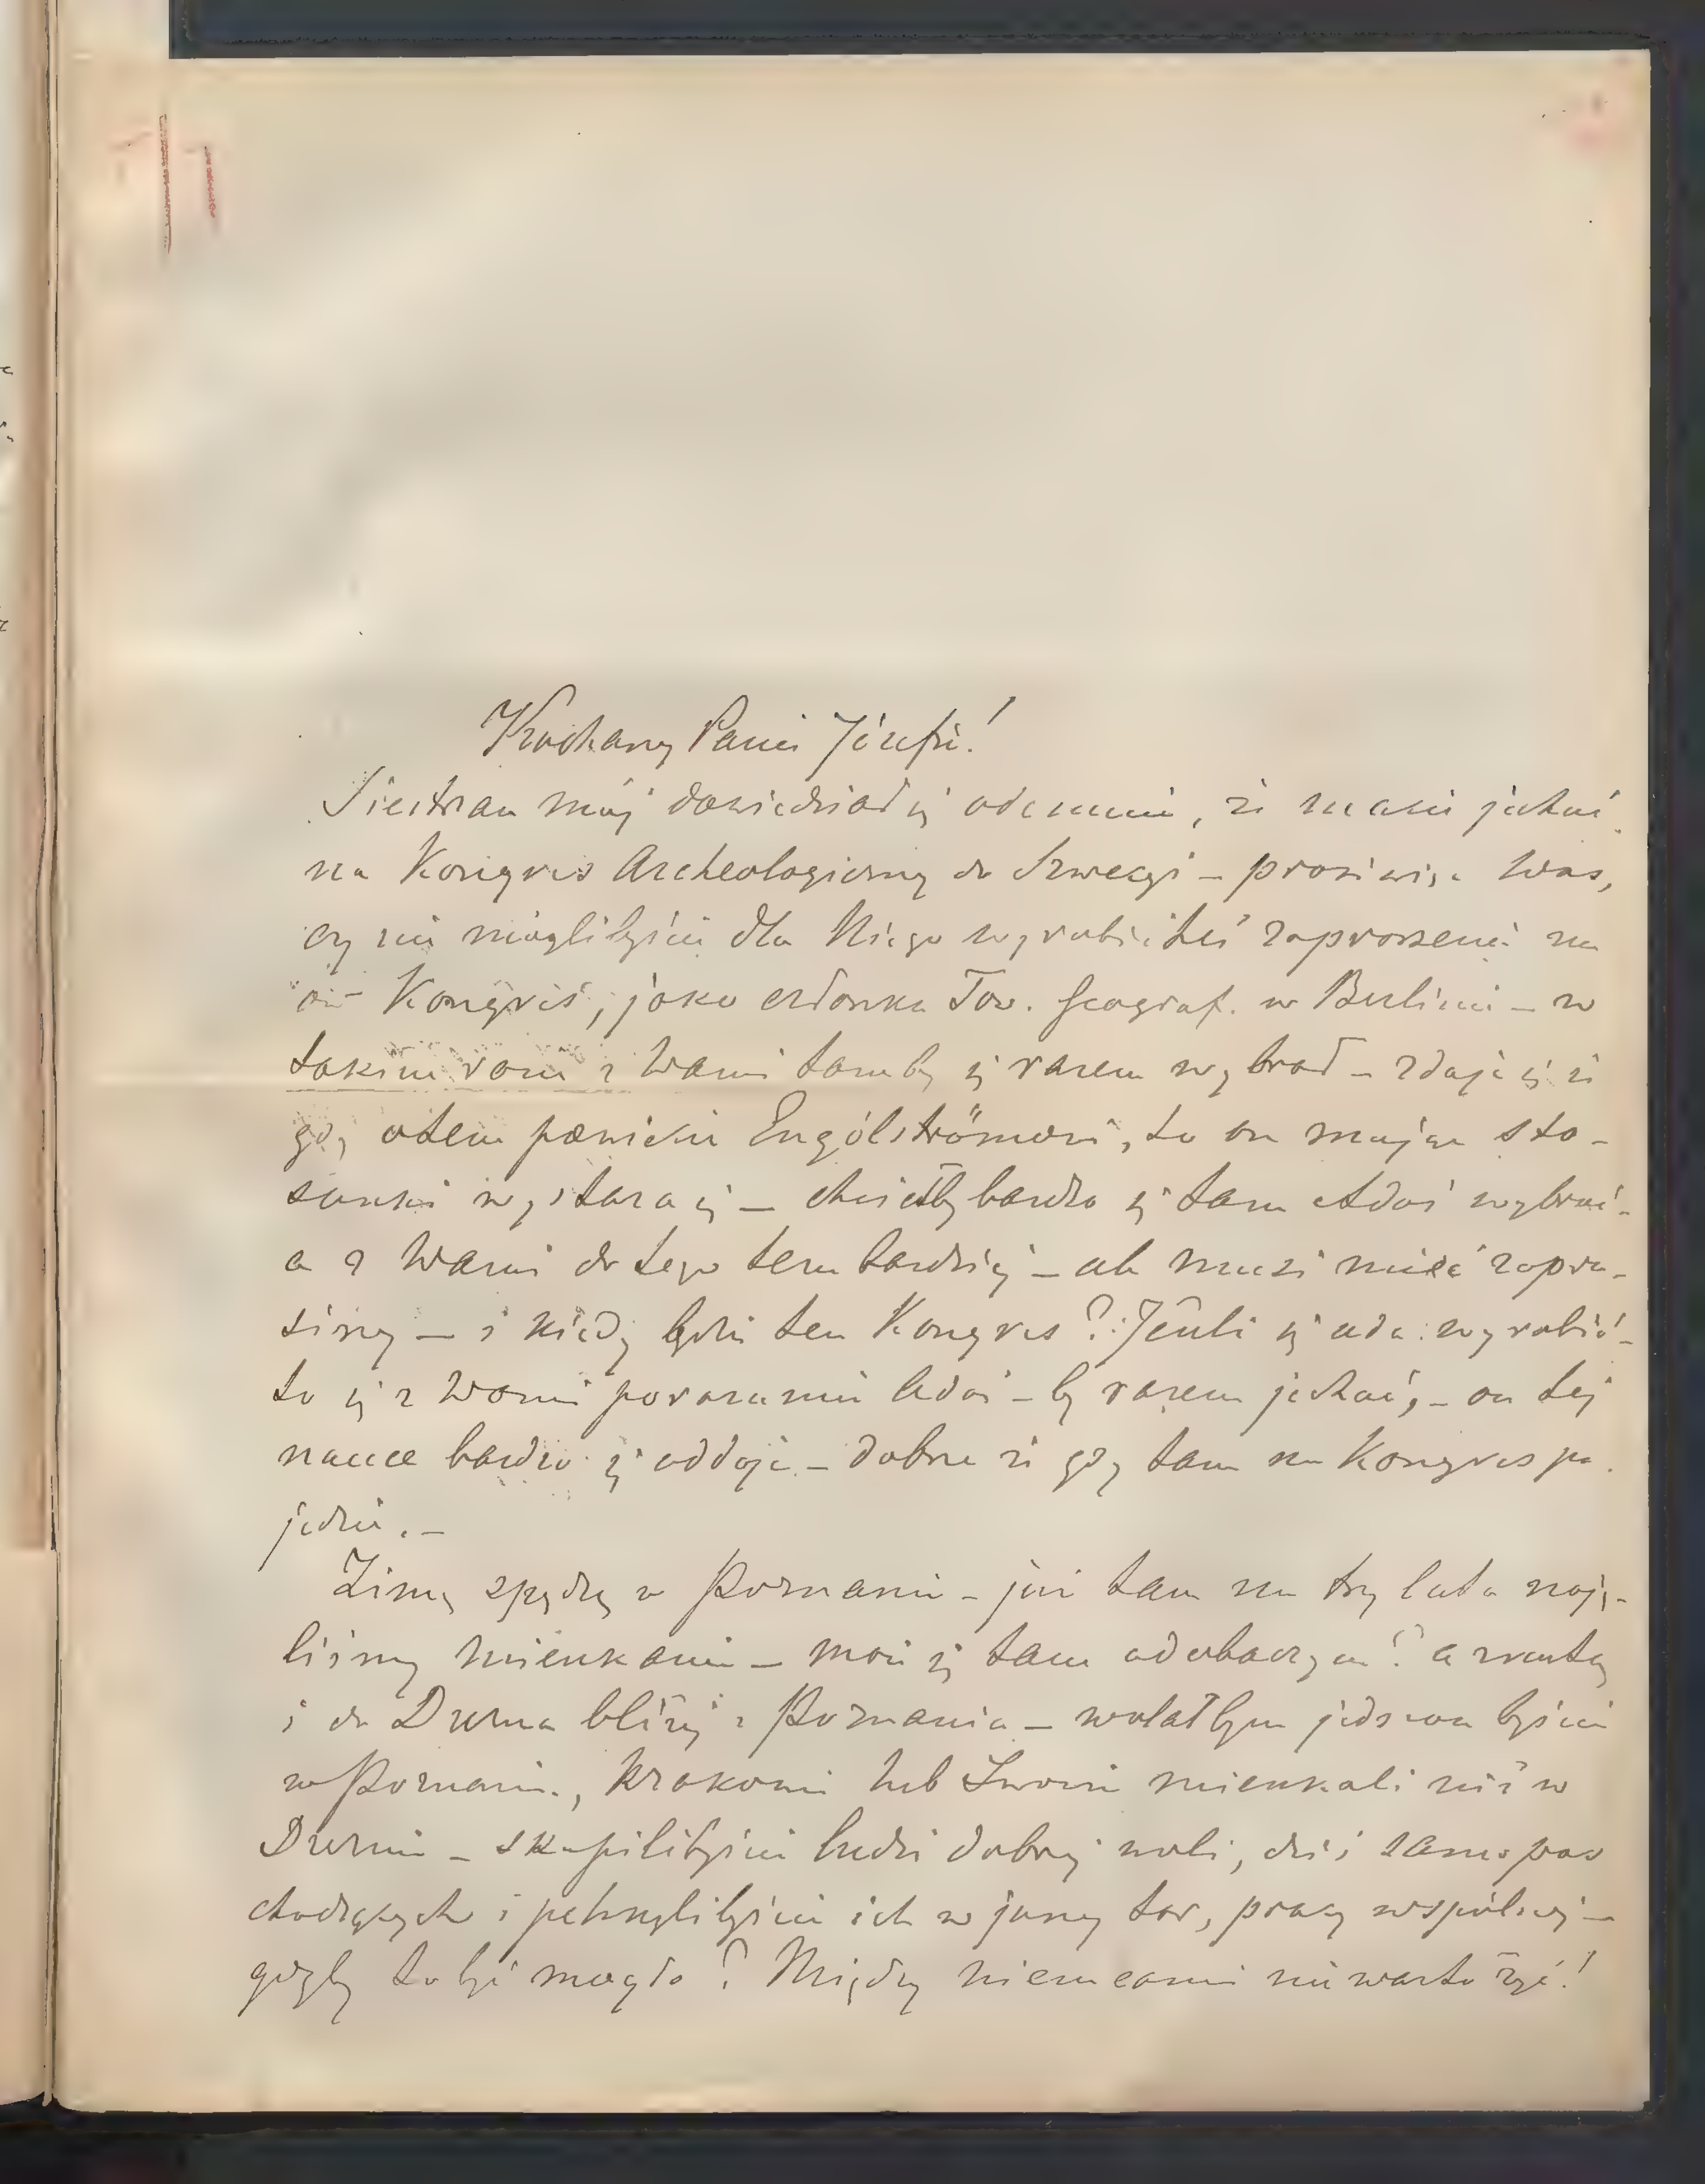 Kochany Panie Józefie!
Siestrzan mój dowiedział się odemnie, że macie jechać
na Kongres Archeologiczny do Szwecyi – prosi więc Was,
czy nie moglibyście dla Niego wyrobić też zaproszenie na
ów Kongres, jako członka Tow. Geograf. w Berlinie – w
takim razie z Wami tamby się razem wybrał – zdaje się że
gdy otem powiecie Engölströmowi, to on mając sto-
sunki wystara się – chciałby bardzo się tam Adaś wybrać –
a z Wami do tego tem bardziej – ale musi mieć zapro-
siny – i kiedy będzie ten Kongres? Jeżeli się uda wyrobić –
to się z Wami porozumie Adaś – by razem jechać, – on tej
nauce bardzo się oddaje – dobrze że gdy tam na Kongres po-
jedzie. –
Zimę spędzę w Poznaniu – już tam na trzy lata naję-
liśmy mieszkanie – może się tam zobaczym? a zresztą
i do Drezna bliżej z Poznania – wolałbym jednak byście
w Poznaniu, Krakowie lub Lwowie mieszkali niż w
Dreznie – skupilibyście ludzi dobrej woli, dziś samopas
chodzących i pchnęlibyście ich w jeny tor, pracy wspólnej –
gdyby to być mogło? Między niemcami nie warto żyć!